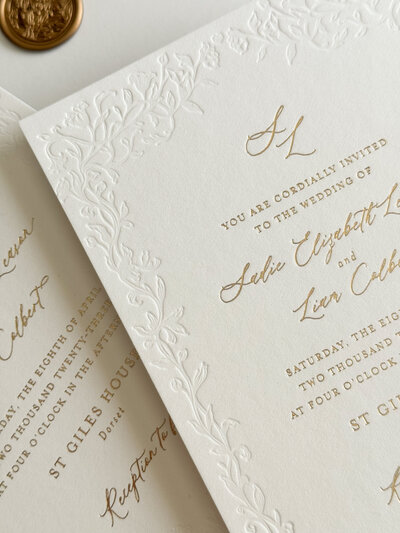 SL
YOU ARE CORDIALLY INVITED
TO THE WEDDING OF
Sadie Elizabeth Le
and
Liam Colbe
SATURDAY, THE EIGHTH
TWO THOUSAND TWENTY-
AT FOUR O'CLOCK IN THE
ST GILES HO
Leason
Colbert
DAY, THE EIGHTH OF APRIL
THOUSAND TWENTY-THREE
FOUR O'CLOCK IN THE AFTER
ST GILES HOUSE
Dorset
Reception to